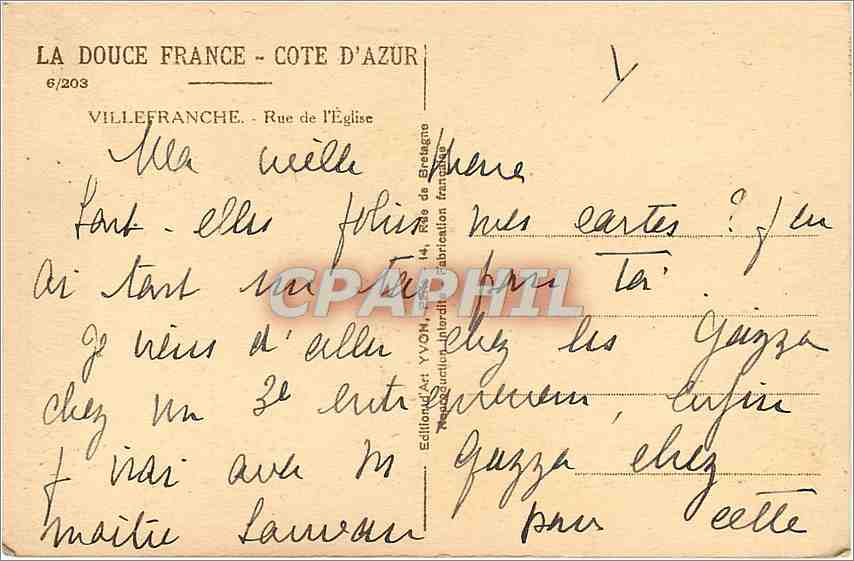 LA DOUCE FRANCE - COTE D'AZUR
6/203
VILLEFRANCHE. - Rue de l'Église
Y
Ma vieille Mane
Sont-elles jolies mes cartes ? J'en
ai tout un tas pour toi
Je viens d'aller chez les Gazza
chez un 3e entrepreneur, enfin
j'irai avec M Gazza chez
maitre pour cette
Edition d'Art YVON, 14, Rue de Bretagne
Reproduction interdite Fabrication française
CPAPHIL